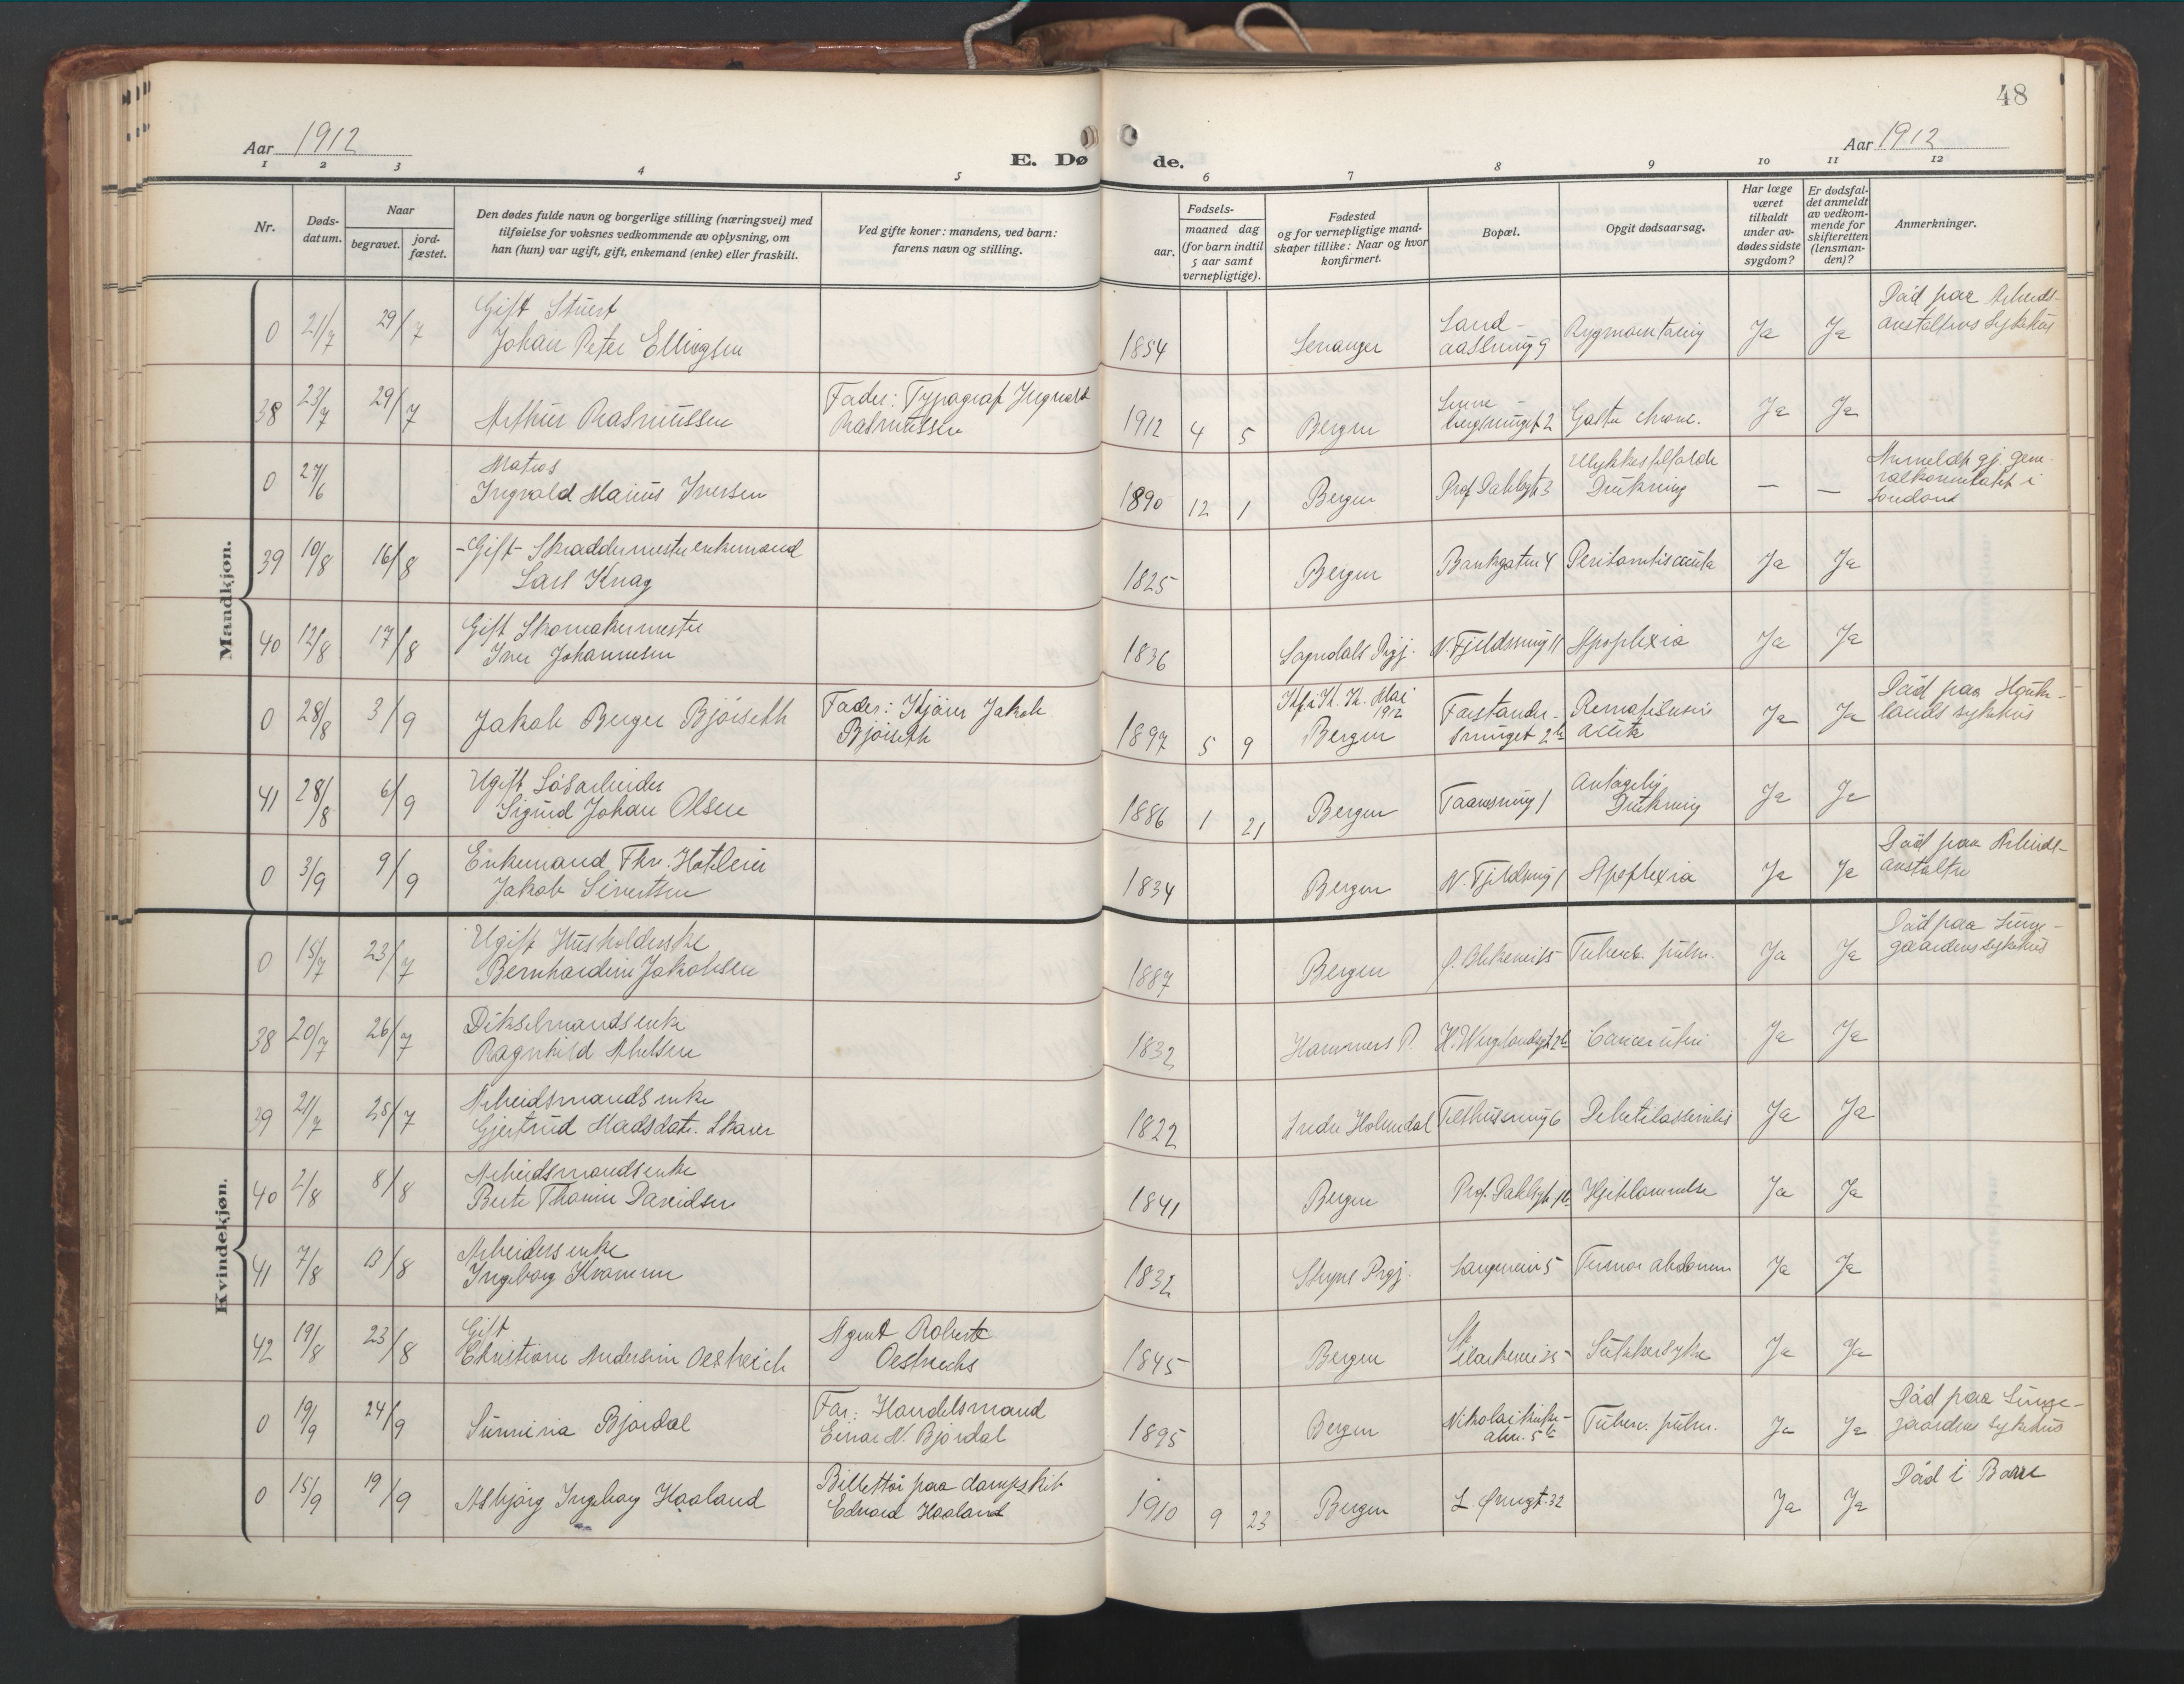 48
Aar 1912
E. Dø de.
Aar 1912
1 2 3 4 5 6 7 8 9 10 11 12
Nr.
Døds-
datum.
Naar
begravet.
jord-
fæstet.
Den dødes fulde navn og borgerlige stilling (næringsvei) med
tilføielse for voksnes vedkommende av oplysning, om
han (hun) var ugift, gift, enkemand (enke) eller fraskilt.
Ved gifte koner: mandens, ved barn:
farens navn og stilling.
Fødsels-
aar.
maaned dag
(for barn indtil
5 aar samt
vernepligtige).
Fødested
og for vernepligtige mand-
skaper tillike: Naar og hvor
konfirmert.
Bopæl.
Opgit dødsaarsag.
Har læge
været
tilkaldt
under av-
dødes sidste
sygdom?
Er dødsfal-
det anmeldt
av vedkom-
mende for
skifteretten
(lensman-
den)?
Anmerkninger.
Mandkjøn.
0 21/7 29/7 Gift Stuert
Johan Peter Ellingsen
1854 Ja Ja
Død paa Arbeids-
anstaltens Sykehus
38 23/7 29/7 Arthur Rasmussen
Fader: Typograf Ingvald
Rasmussen
1912 4 5 Bergen Ja Ja
0 27/6 Matros
Ingvald Marius Iversen
1890 12 1 Bergen Prof. Dahlsgt 3 Ulykkestilfælde
Drukning — —
Anmeldt gj. gene-
ralkonsulatet i
London
39 10/8 16/8 -Gift- Skræddermester enkemand
Carl Knag
1825 Bergen Bankgaten 4 Peritonitis acuta Ja Ja
40 12/8 17/8 Gift Skomakermester
Iver Johannesen
1836 Sogndals Prgj. N. Fjeldsmug 11 Apoplexia Ja Ja
0 28/8 3/9 Jakob Berger Bjørseth
Fader: Kjører Jakob
Bjørseth
1897 5 9 Mai
1912
Bergen Forstander-
smuget 2b Ja Ja
Død paa Hauke-
lands sykehus
41 28/8 6/9 Ugift Løsarbeider
Sigurd Johan Olsen
1886 1 21 Bergen Taarnsmug 1 Antagelig
Drukning Ja Ja
0 3/9 9/9 Enkemand Fhv. Hoteleier
Jakob Sivertsen
1834 Bergen N. Fjeldsmug 1 Apoplexia Ja Ja
Død paa Arbeids-
anstalten
Kvindekjøn.
0 15/7 23/7 Ugift Husholderske
Bernhardine Jakobsen
1887 Bergen Ø. Blekevei 15 Tuberc. pulm. Ja Ja
Død paa Lunge-
gaardens sykehus
38 20/7 26/7 Dikselmands enke
Ragnhild Abelsen
1832 Hammers P. H. Wergelandsgt 2b Cancer uteri Ja Ja
39 21/7 25/7 Arbeidsmands enke
Gjertrud Madsdatr. Skaar
1822 Indre Holmedal Telthussmug 6 Debilitas senilis Ja Ja
40 2/8 8/8 Arbeidsmandsenke
Berte Thomine Davidsen
1841 Bergen Prof. Dahlsgt 1b Hjertelammelse Ja Ja
41 7/8 13/8 Arbeiders enke
Ingeborg Kvamme
1832 Stryns Prgj. 5 Tumor abdomen Ja Ja
42 19/8 23/8 Gift
Christiane Andersine Oestreich
Agent Robert
Oestreichs
1845 Bergen Sukkersyke Ja Ja
0 19/9 24/9 Sunniva Bjordal
Far: Handelsmand
Einar N. Bjordal
1895 Bergen Nikolaikirke-
alm. 5b Tuberc. pulm. Ja Ja
Død paa Lunge-
gaardens sykehus
0 15/9 19/9 Asbjørg Ingeborg Haaland
Billettør paa dampskib
Edvard Haaland
1910 9 23 Bergen L. Øvregt. 32 Ja Ja
Død i